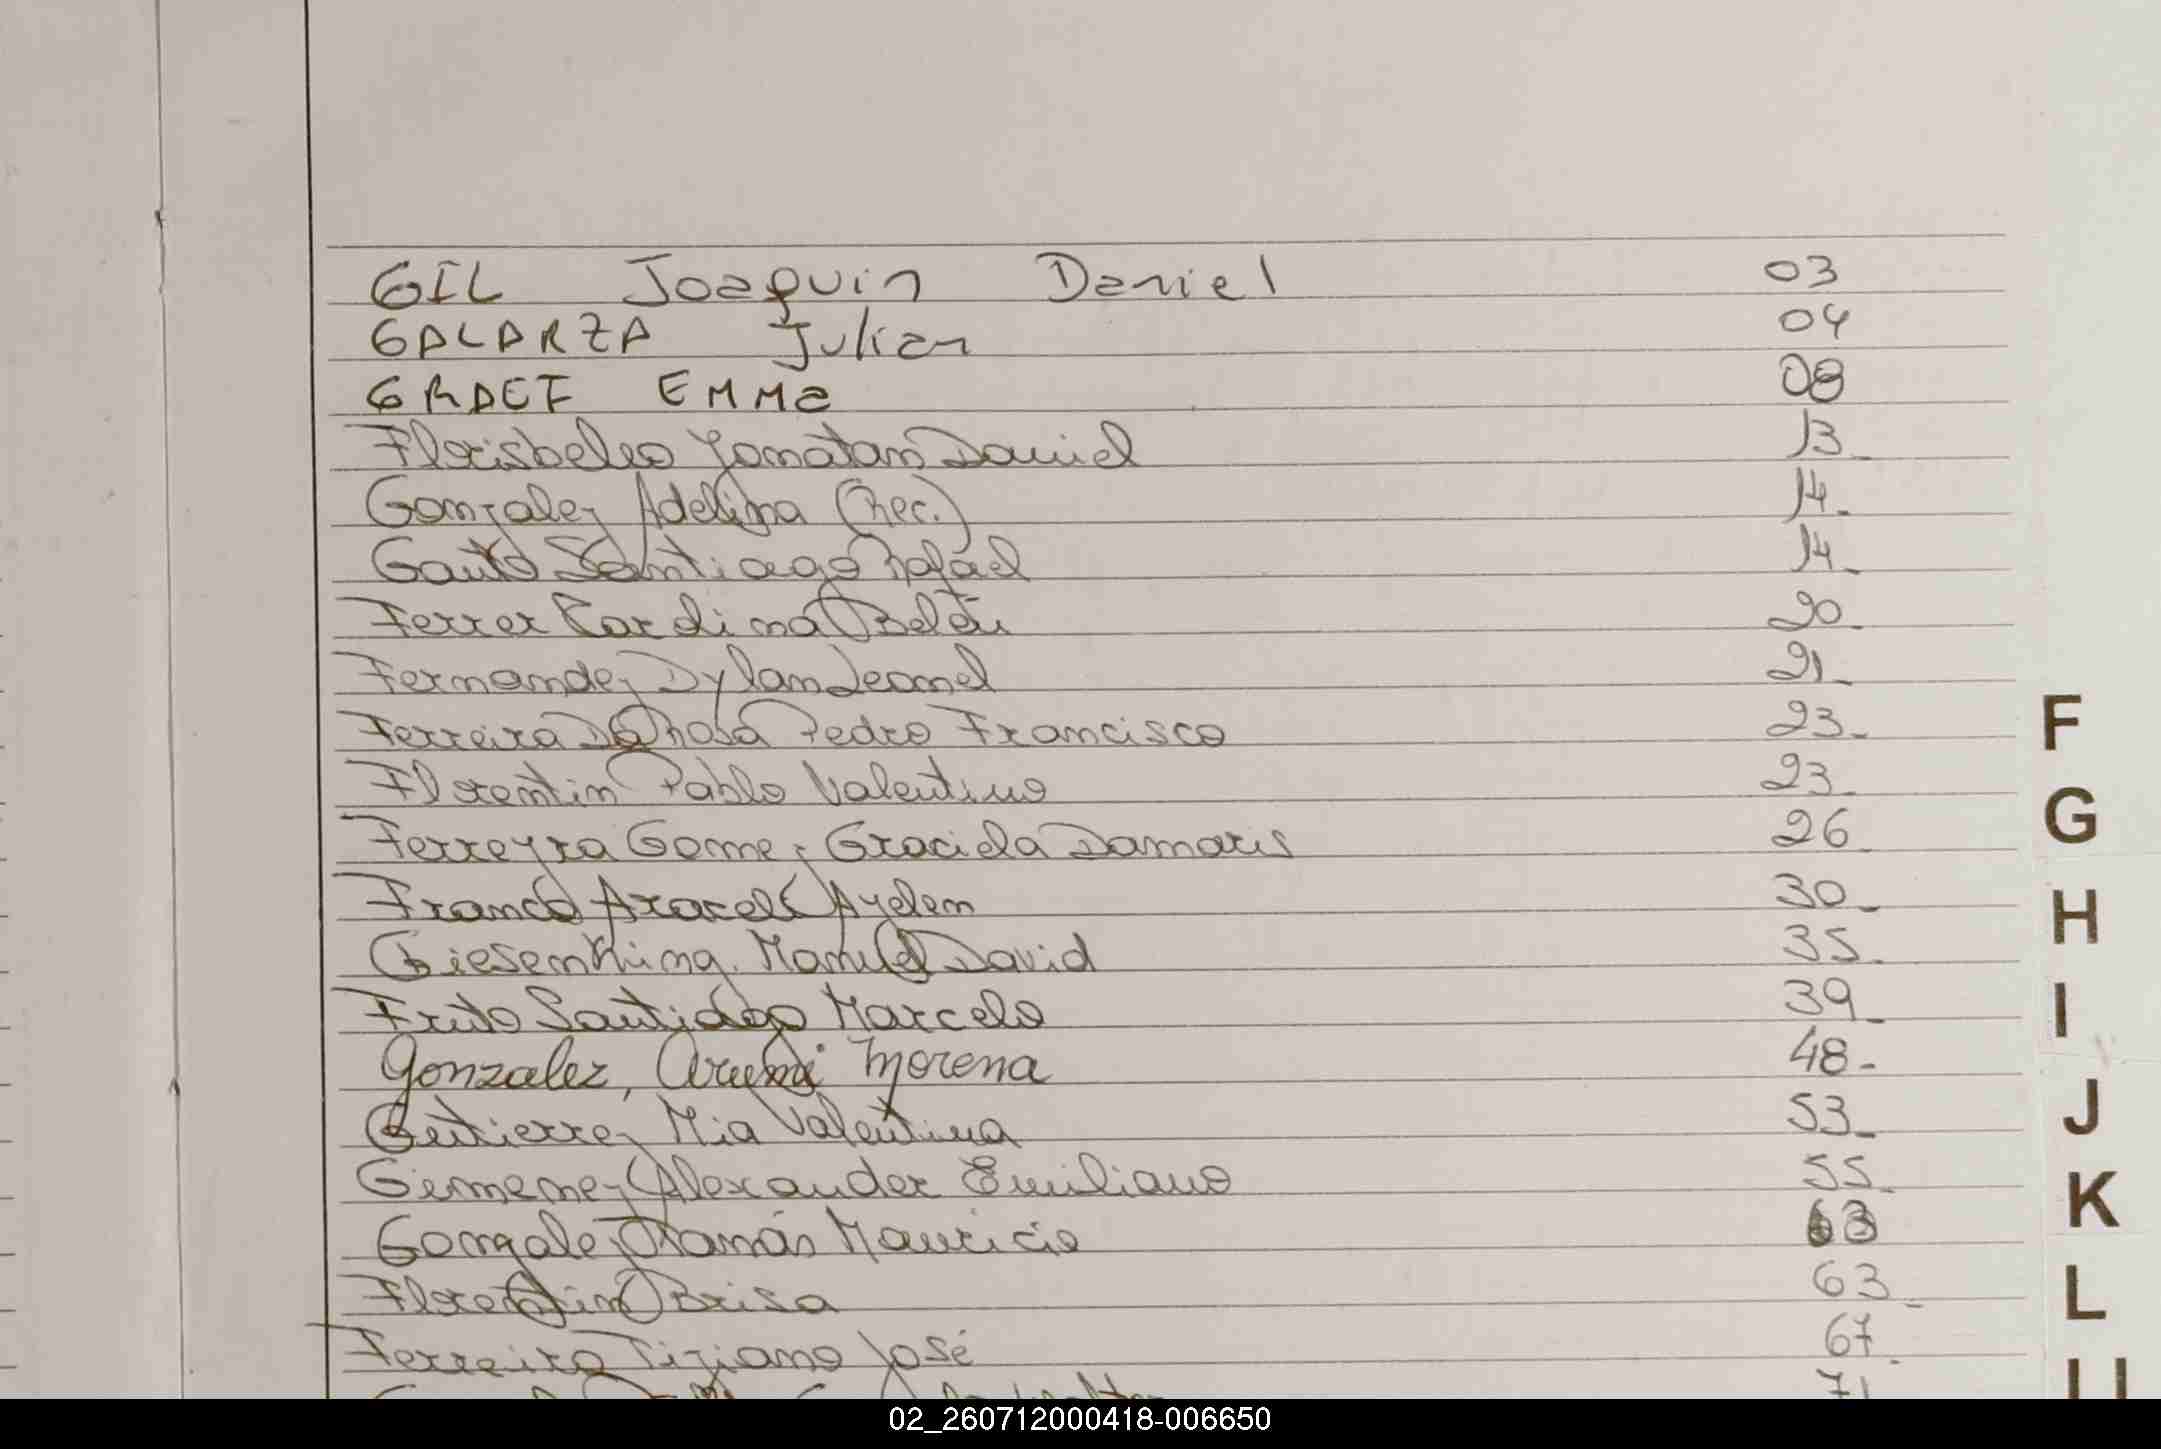 GIL Joaquin Daniel 03
GALARZA Julian 04
GRAEF EMMa 08
Florisbelo Jonatan Daniel 13
Gonzalez Adelina (Rec.) 14
Gauto Santiago Rafael 14
Ferrer Carolina Belén 20
Fernandez Dylan Leonel 21
Ferreira Da Rosa Pedro Francisco 23
Florentin Pablo Valentino 23
Ferreyra Gomez Graciela Damaris 26
Franco Araceli Ayelen 30
Giesenhing Manuel David 35
Frito Santiago Marcelo 39
Gonzalez, Morena 48
Gutierrez Mia Valentina 53
Gimenez Alexander Emiliano 55
Gonzalez Tomás Mauricio 63
Florentin Brisa 63
Ferreira Tiziano José 67
71
F
G
H
I
J
K
L
LL
02_260712000418-006650